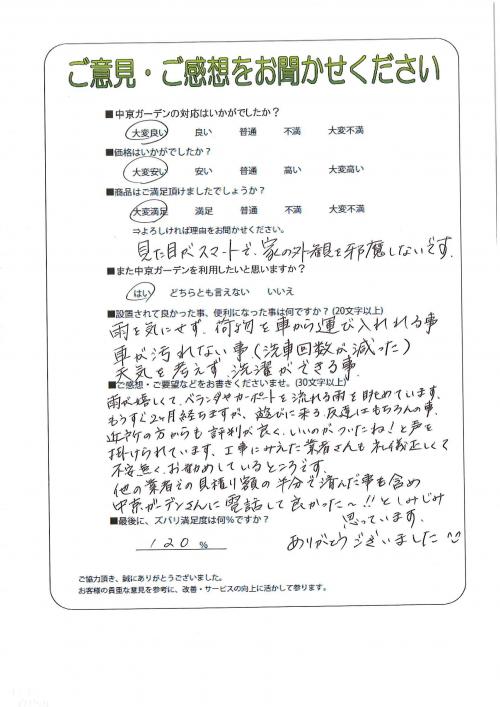 ご意見・ご感想をお聞かせください
■中京ガーデンの対応はいかがでしたか？
大変良い 良い 普通 不満 大変不満
■価格はいかがでしたか？
大変安い 安い 普通 高い 大変高い
■商品はご満足頂けましたでしょうか？
大変満足 満足 普通 不満 大変不満
⇒よろしければ理由をお聞かせください。
見た目がスマートで、家の外観を邪魔しないです。
■また中京ガーデンを利用したいと思いますか？
はい どちらとも言えない いいえ
■設置されて良かった事、便利になった事は何ですか？(20文字以上)
雨を気にせず、荷物を車から運び入れれる事
車が汚れない事(洗車回数が減った)
天気を考えず、洗濯ができる事
■ご感想・ご要望などをお書きくださいませ。(30文字以上)
雨が嬉しくて、ベランダやカーポートを流れる雨を眺めています。
もうすぐ2ヶ月経ちますが、遊びに来る友達はもちろんの事、
近所の方からも評判が良く、いいのがついたね！と声を
掛けられています。工事にみえた業者さんも礼儀正しくて
不安無く、お勧めしているところです。
他の業者さの見積り額の半分で済んだ事も含め
中京ガーデンさんに電話して良かった〜!!としみじみ
思っています。
■最後に、ズバリ満足度は何%ですか？
120 %
ありがとうございました
ご協力頂き、誠にありがとうございました。
お客様の貴重な意見を参考に、改善・サービスの向上に活かして参ります。